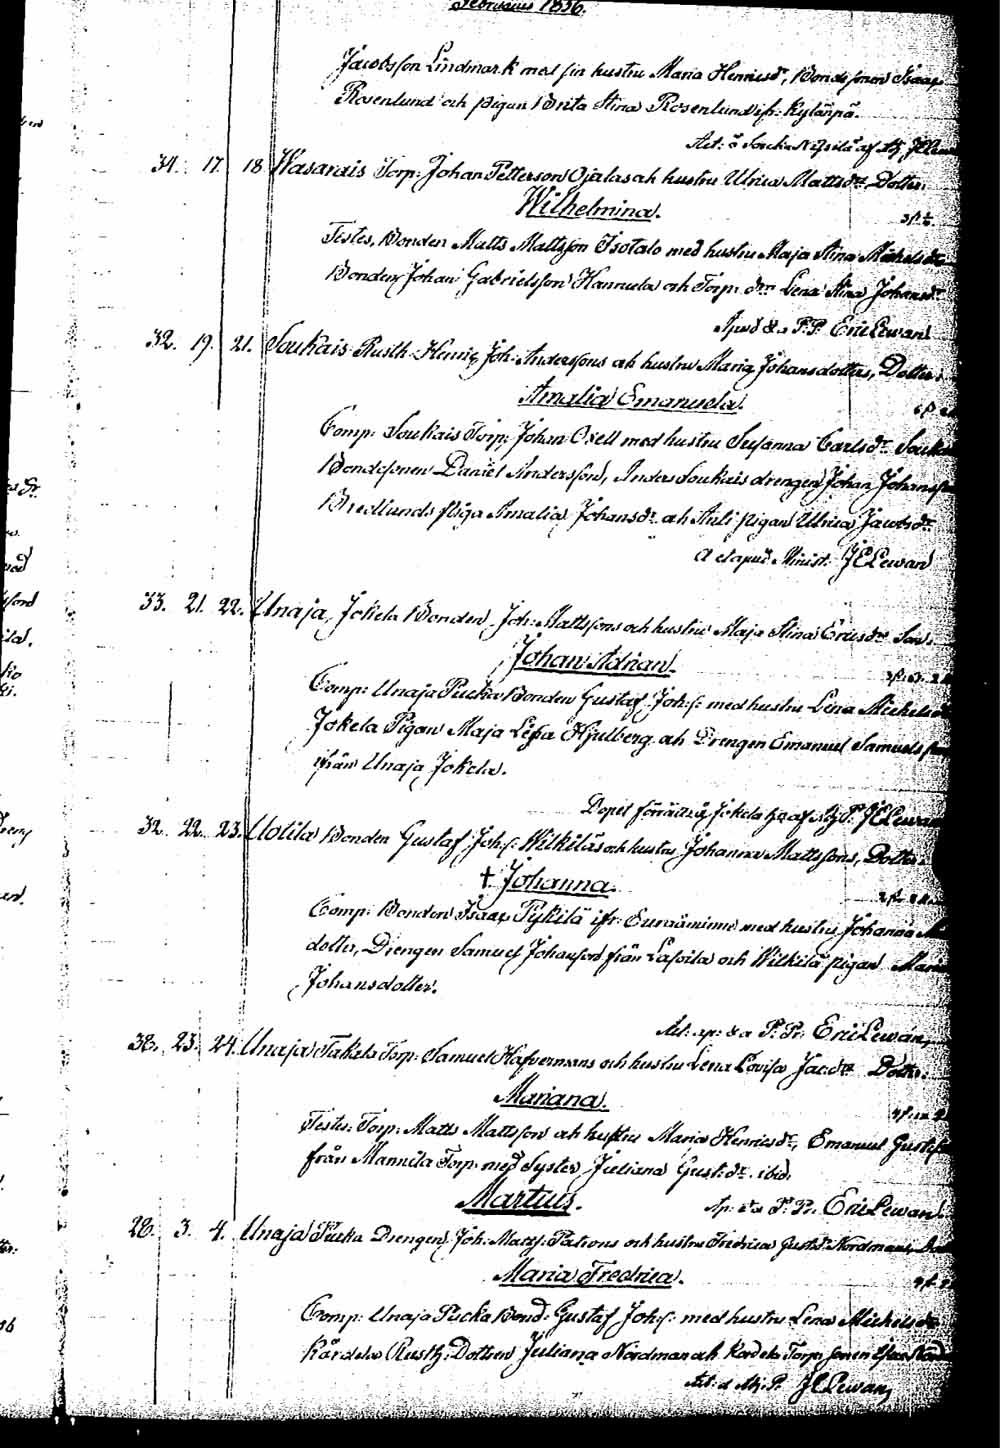 Februarius 1836.
Jacobsson Lindmark med sin hustru Maria Henricsdr, Bondesonen Isaac
Rosenlund och pigan Brita Stina Rosenlund ifr: Kylänpä.
34. 17. 18 Wasarais Torp: Johan Pettersson Ojalas och hustru Ulrica Mattsdrs Dotter:
Wilhelmina.
Testes, Bonden Matts Mattsson Isotalo med hustru Maja Stina Michelsdr
Bonden Johan Gabrielsson Hannula och Torp: dr Lena Stina Johansdr
Apud &a P.P. Eric Lewan
32. 19. 21. Soukais Rusth: Henric Joh: Anderssons och hustru Maria Johansdotters, Dotter:
Amalia Emanuela.
Comp: Soukais Torp: Johan Oxell med hustru Susanna Carlsdr
Bondesonen Daniel Andersson, Anders Soukais drengen Johan Johansson
Bredlunds piga Amalia Johansdr och Anli pigan Ulrica Jacobsdr
Minist: JELewan
33. 21. 22. Unaja, Jokela Bonden Joh: Mattssons och hustru Maja Stina Ericsdrs Son.
Johan Adrian.
Comp: Unaja Pucka Bonden Gustaf Joh:s: med hustru Lena Michelsdr
Jokela Pigan Maja Lisa Hjulberg och Drengen Emanuel Samuelsson
ifrån Unaja Jokela.
Jokela af JELewan
32. 22. 23. Uotila Bonden Gustaf Joh:s: Wilkiläs och hustru Johanna Mattssons, Dotter:
† Johanna.
Comp: Bonden Isaac Pykilä ifr: Euraåminne med hustru Johanna
dotter, Drengen Samuel Johansson från Lassila och Wilkilä pigan Maria
Johansdotter.
Act: ap: &a P: Pr: Eric Lewan,
38. 23. 24. Unaja Takala Torp: Samuel Hafvermans och hustru Lena Lovisa Jac:drs Dotter:
Mariana.
Testes: Torp: Matts Mattsson och hustru Maria Henricsdr, Emanuel Gustafs:
från Mannila Torp: med Syster Juliana Gust:dr ibid.
Martius.
Ap: &a P: Pr: Eric Lewan.
28. 3. 4. Unaja Pucka Drengen Joh: Matts: Patrons och hustru Fredrica Gustdr Nordmans,
Maria Fredrica.
Comp: Unaja Pucka Bond: Gustaf Joh:s: med hustru Lena Michelsdr
Kårdela Rusth: Dottren Juliana Nordman och Kårdela Torp: sonen
JELewan